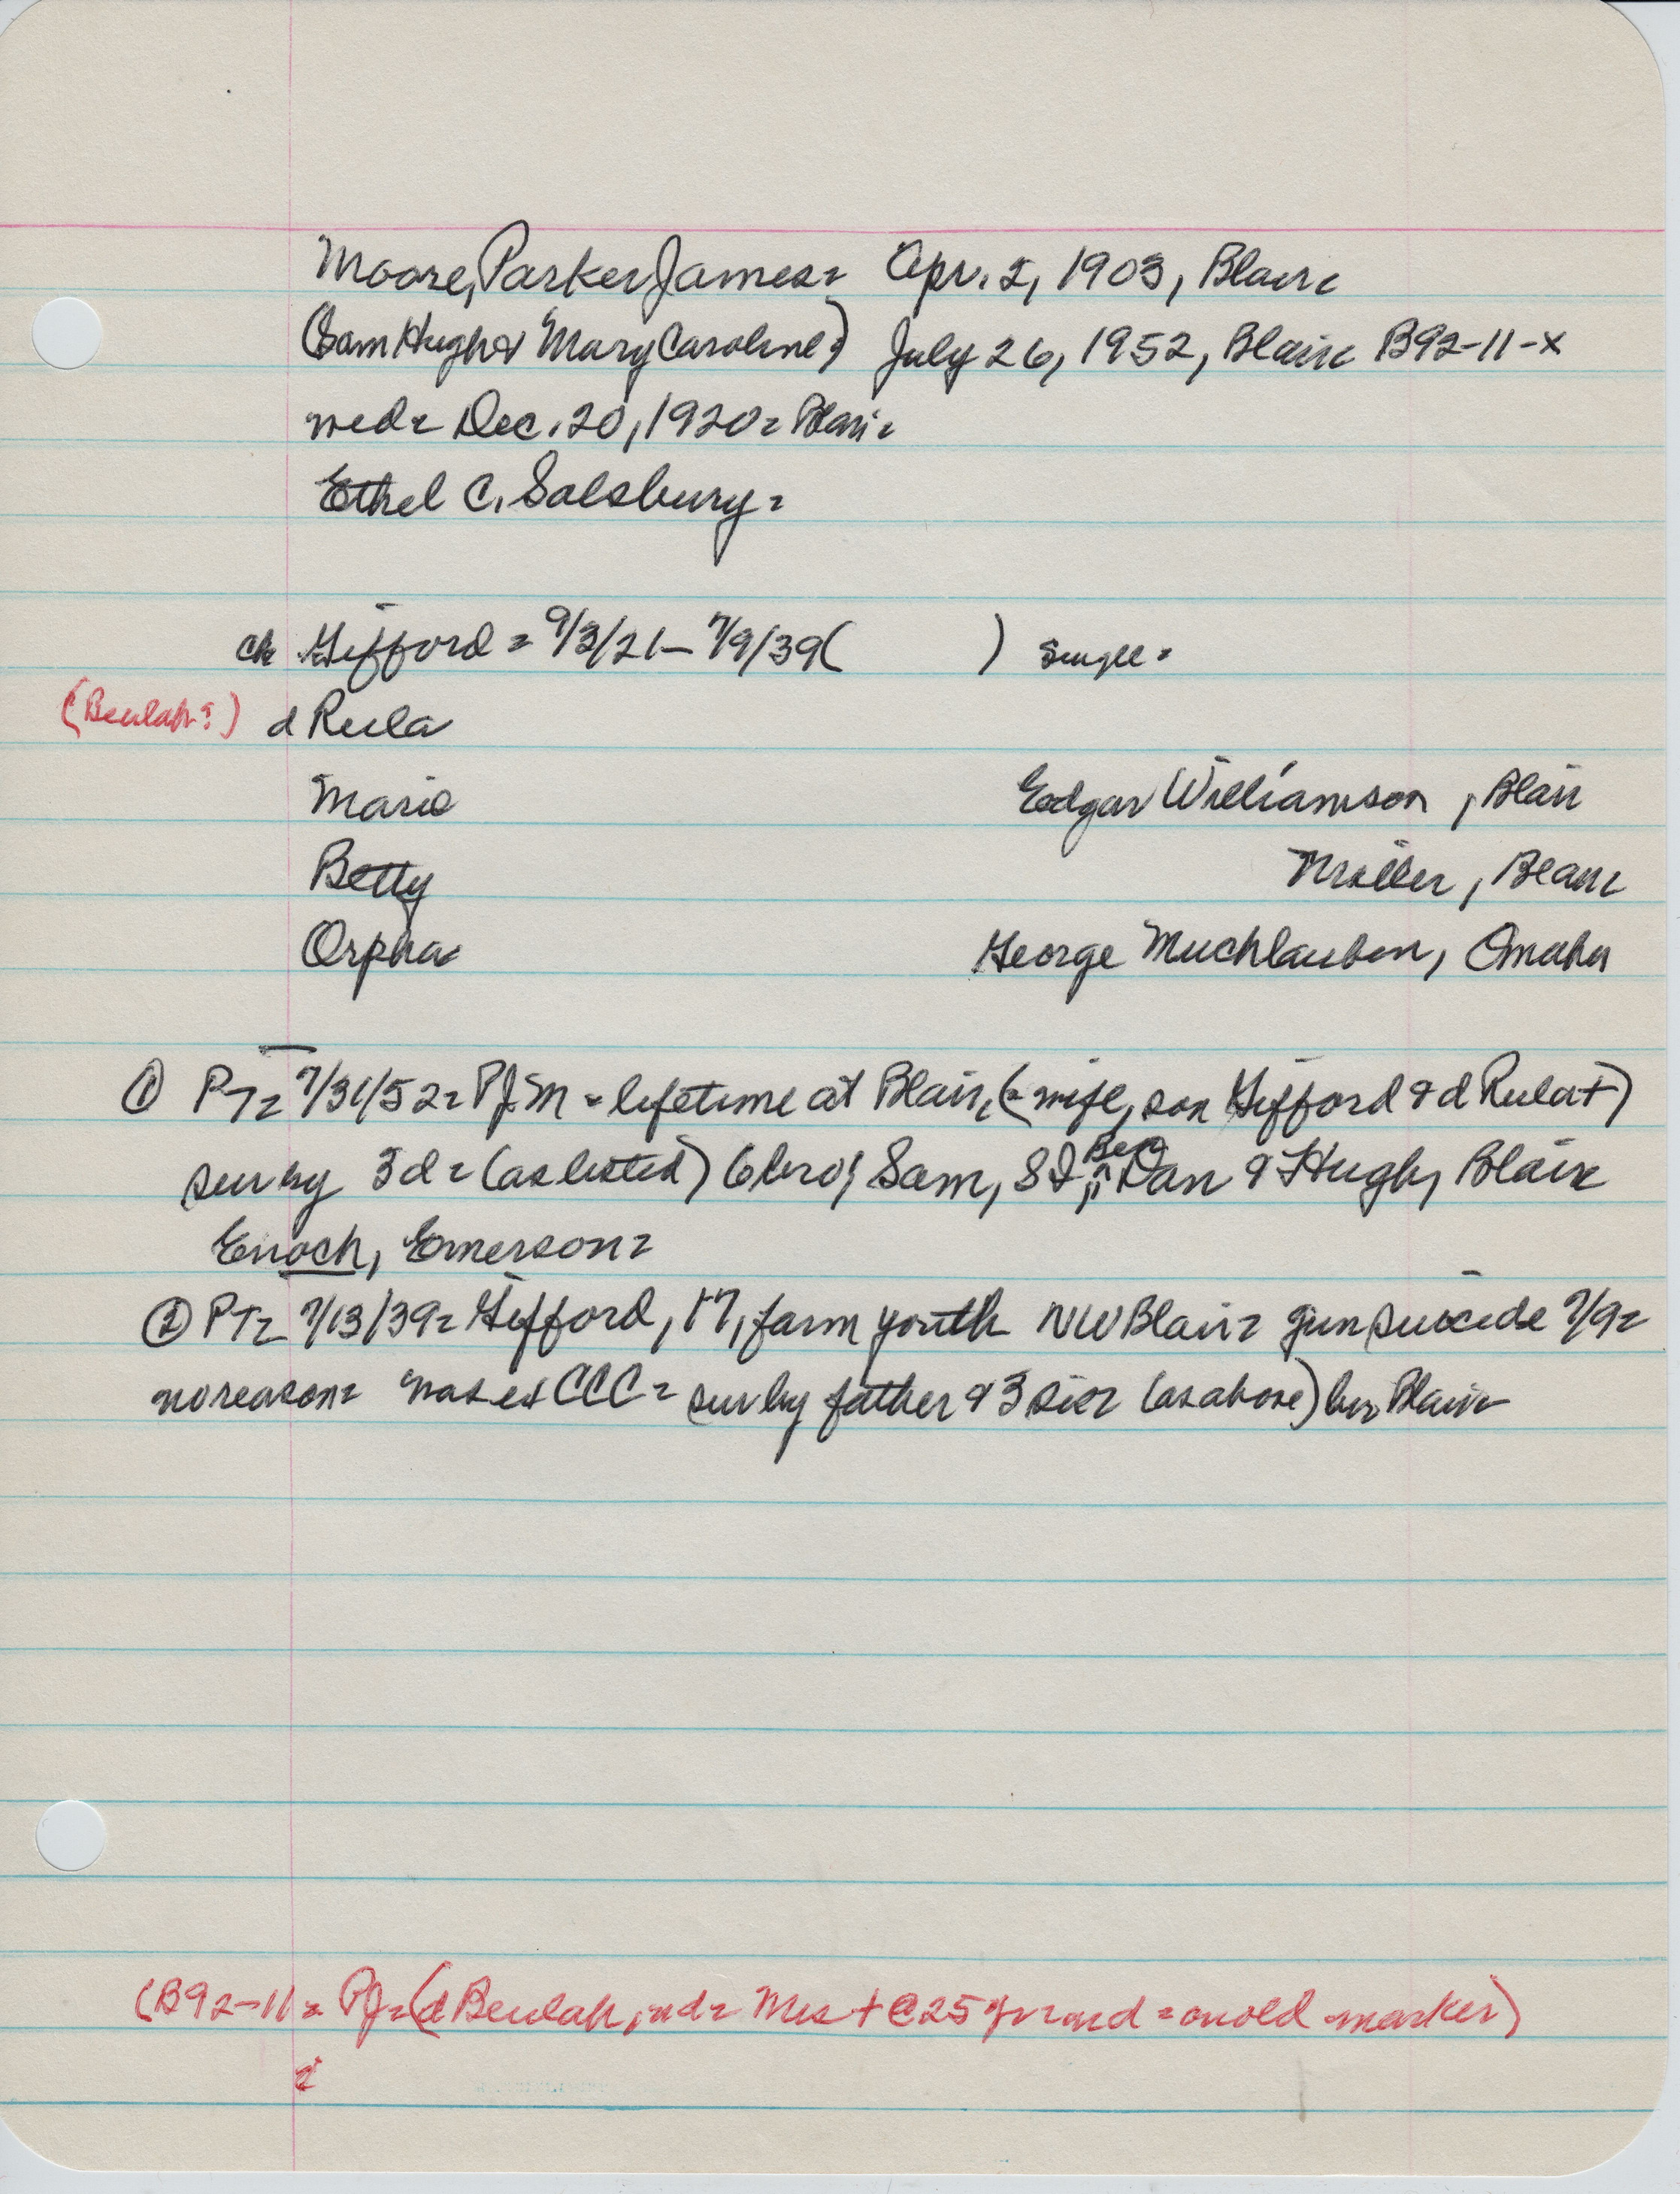 Moore, Parker James= Apr. 2, 1903, Blair=
(Sam Hugh & Mary Caroline=) July 26, 1952, Blair= B92-11-x
wed= Dec. 20, 1920= Blair=
Ethel C. Salsbury=
ch Gifford= 9/3/21- 7/9/39( ) single=
(Beulah?) d Rula
Marie Edgar Williamson, Blair
Betty Miller, Blair=
Orpha George Muchlauben, Omaha
① PT= 7/31/52= PJM = lifetime at Blair, (= wife, son Gifford & d Rula +)
sur by 3d= (as listed) 6 bro; Sam, SD; Ben, Dan & Hugh, Blair=
Enoch, Emerson=
② PT= 7/13/39= Gifford, 17, farm youth NW Blair= gun suicide 7/9=
no reason= was ex CCC= sur by father & 3 sis= (as above) bur Blair=
(B92-11= PJ= (d Beulah, nd= Mrs + @25 yr nd = on old marker)